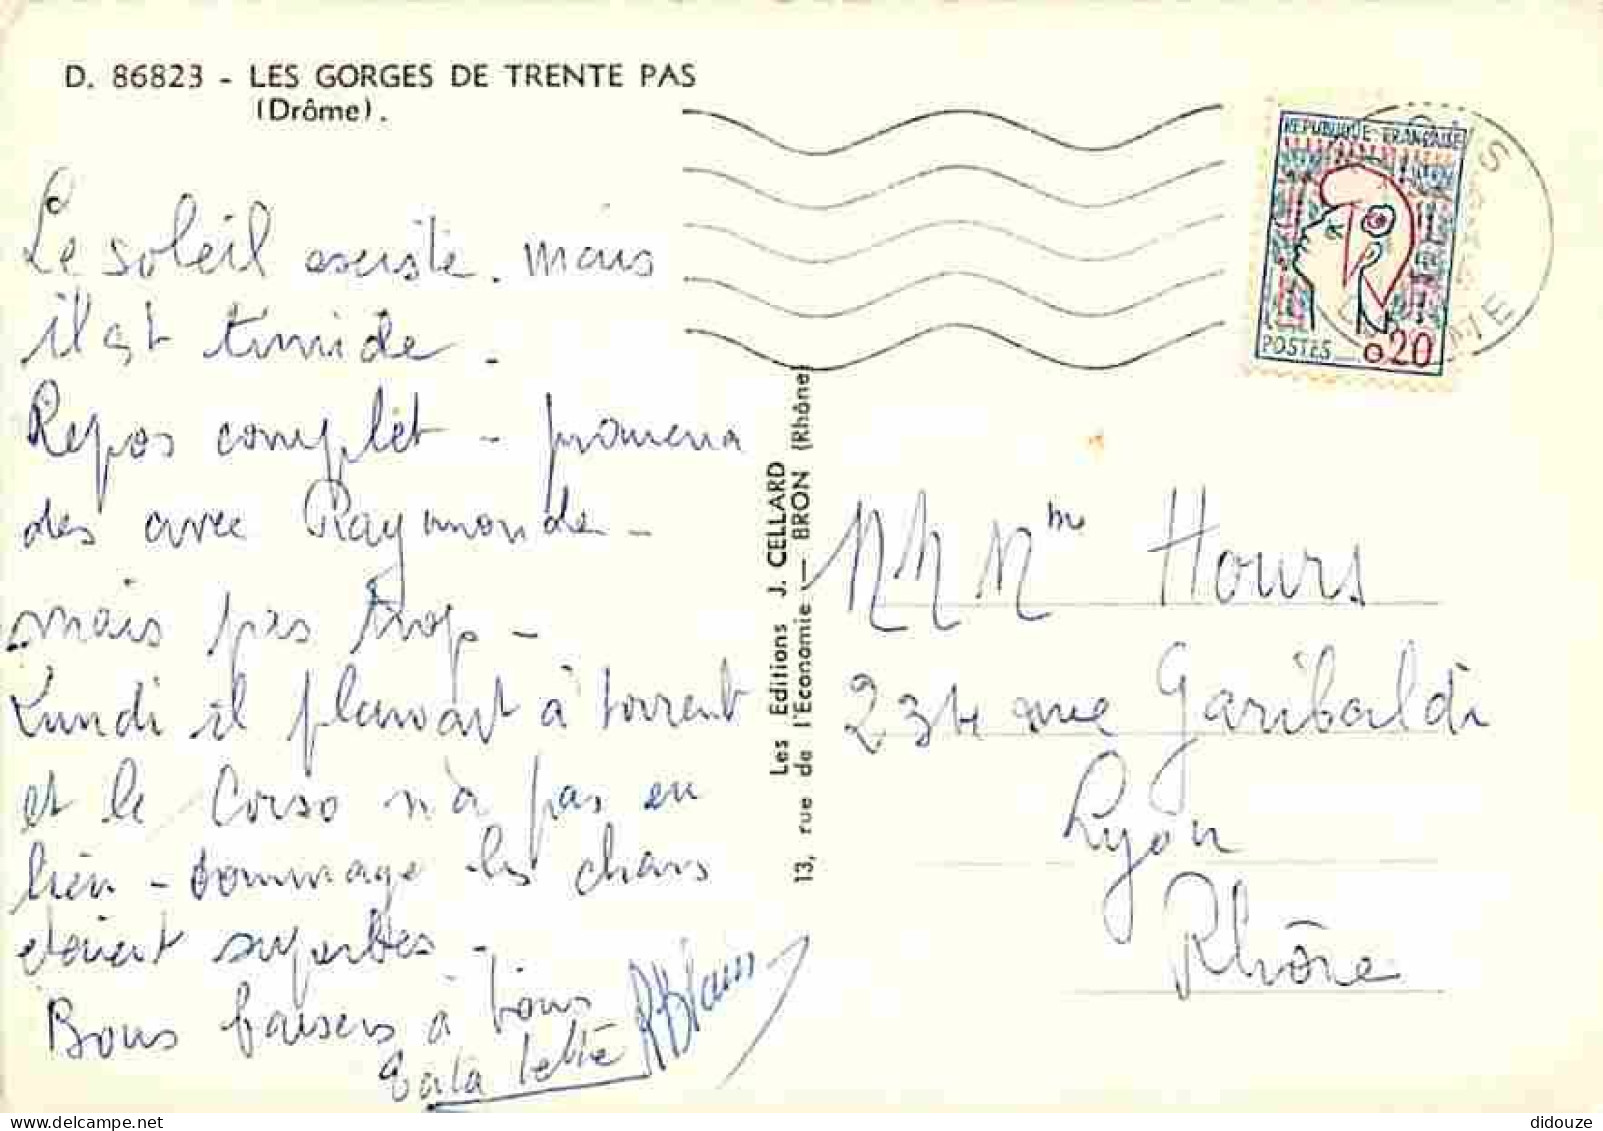 D. 86823 - LES GORGES DE TRENTE PAS
(Drôme).
Le soleil existe. mais
il est timide.
Repos complet - promena
des avec Raymonde -
mais pas trop -
Lundi il pleuvait à torrent
et le Corso n'a pas eu
lieu - dommage les chars
étaient superbes -
Bons baisers à tous
Les Editions J. CELLARD
13, rue de l'Economie — BRON (Rhône)
REPUBLIQUE FRANÇAISE
POSTES 0.20
Mme Hours
234 rue Garibaldi
Lyon
Rhône
didouze